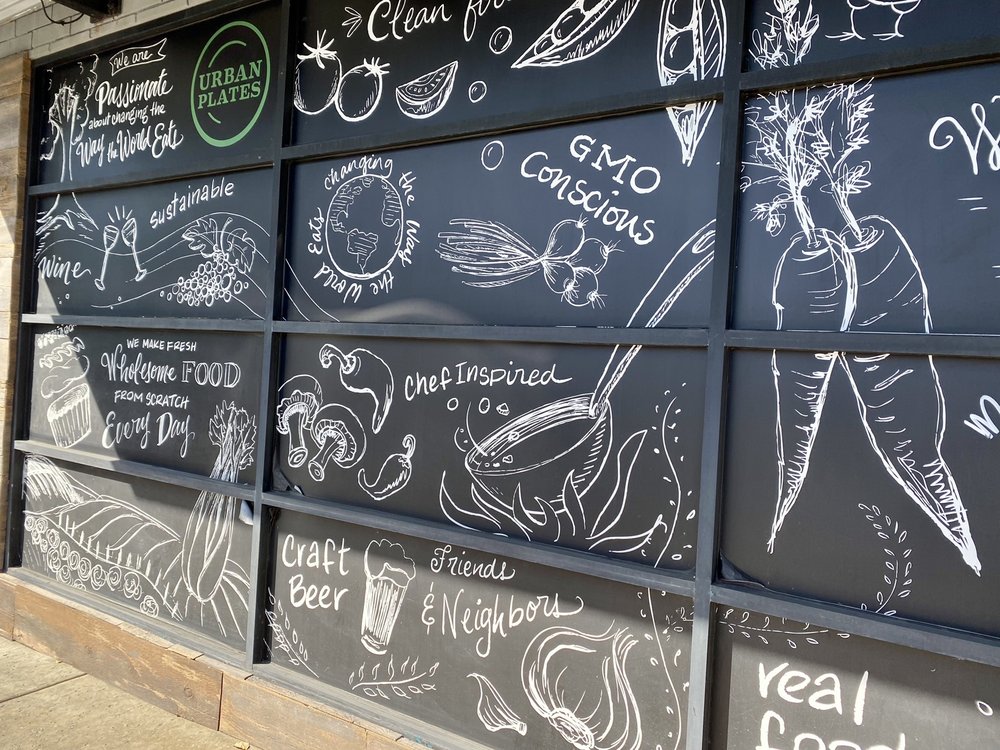 We are
Passionate
about changing the
Way the World Eats
URBAN
PLATES
Clean
sustainable
wine
changing the Way
the World Eats
GMO
Conscious
WE MAKE FRESH
Wholesome FOOD
FROM SCRATCH
Every Day
Chef Inspired
Craft
Beer
Friends
& Neighbors
real
food